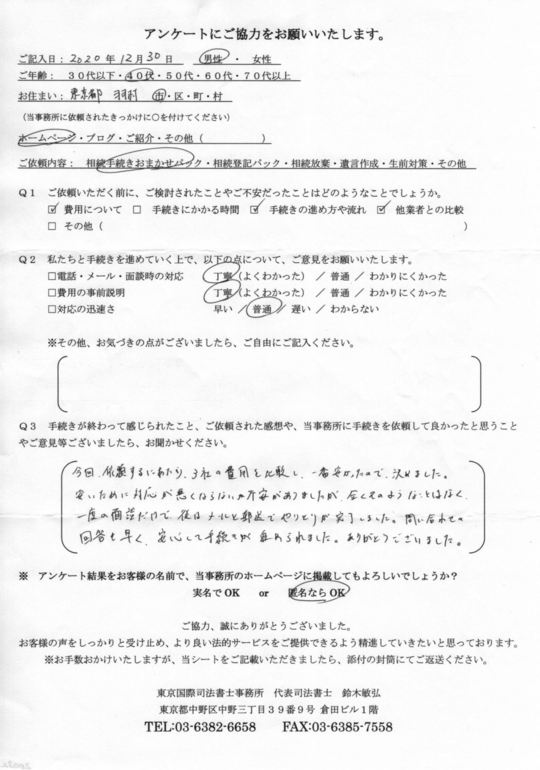 アンケートにご協力をお願いいたします。
ご記入日：2020年12月30日　男性　・　女性
ご年齢：　３０代以下・４０代・５０代・６０代・７０代以上
お住まい：東京都　羽村　市・区・町・村
（当事務所に依頼されたきっかけに○を付けてください）
ホームページ・ブログ・ご紹介・その他（　　　　　）
ご依頼内容：　相続手続きおまかせパック・相続登記パック・相続放棄・遺言作成・生前対策・その他
Ｑ１　ご依頼いただく前に、ご検討されたことやご不安だったことはどのようなことでしょうか。
☑ 費用について　□ 手続きにかかる時間　☑ 手続きの進め方や流れ　☑ 他業者との比較
□ その他（　　　　　）
Ｑ２　私たちと手続きを進めていく上で、以下の点について、ご意見をお願いいたします。
□電話・メール・面談時の対応　丁寧（よくわかった）／ 普通 ／ わかりにくかった
□費用の事前説明　丁寧（よくわかった）／ 普通 ／ わかりにくかった
□対応の迅速さ　早い ／ 普通 ／ 遅い ／ わからない
※その他、お気づきの点がございましたら、ご自由にご記入ください。
Ｑ３　手続きが終わって感じられたこと、ご依頼された感想や、当事務所に手続きを依頼して良かったと思うこと
やご意見等ございましたら、お聞かせください。
今回、依頼するにあたり、3社の費用を比較し、一番安かったので、決めました。
安いために対応が悪くならないか不安がありましたが、全くそのようなことはなく、
一度の面談だけで、後はメールと郵送でやりとりが完了しました。問い合わせの
回答も早く、安心して手続きが進められました。ありがとうございました。
※　アンケート結果をお客様の名前で、当事務所のホームページに掲載してもよろしいでしょうか？
実名でOK　or　匿名ならOK
ご協力、誠にありがとうございました。
お客様の声をしっかりと受け止め、より良い法的サービスをご提供できるよう精進していきたいと思っております。
※お手数おかけいたしますが、当シートをご記載いただきましたら、添付の封筒にてご返送ください。
東京国際司法書士事務所　代表司法書士　鈴木敏弘
東京都中野区中野三丁目３９番９号 倉田ビル１階
TEL:03-6382-6658　FAX:03-6385-7558